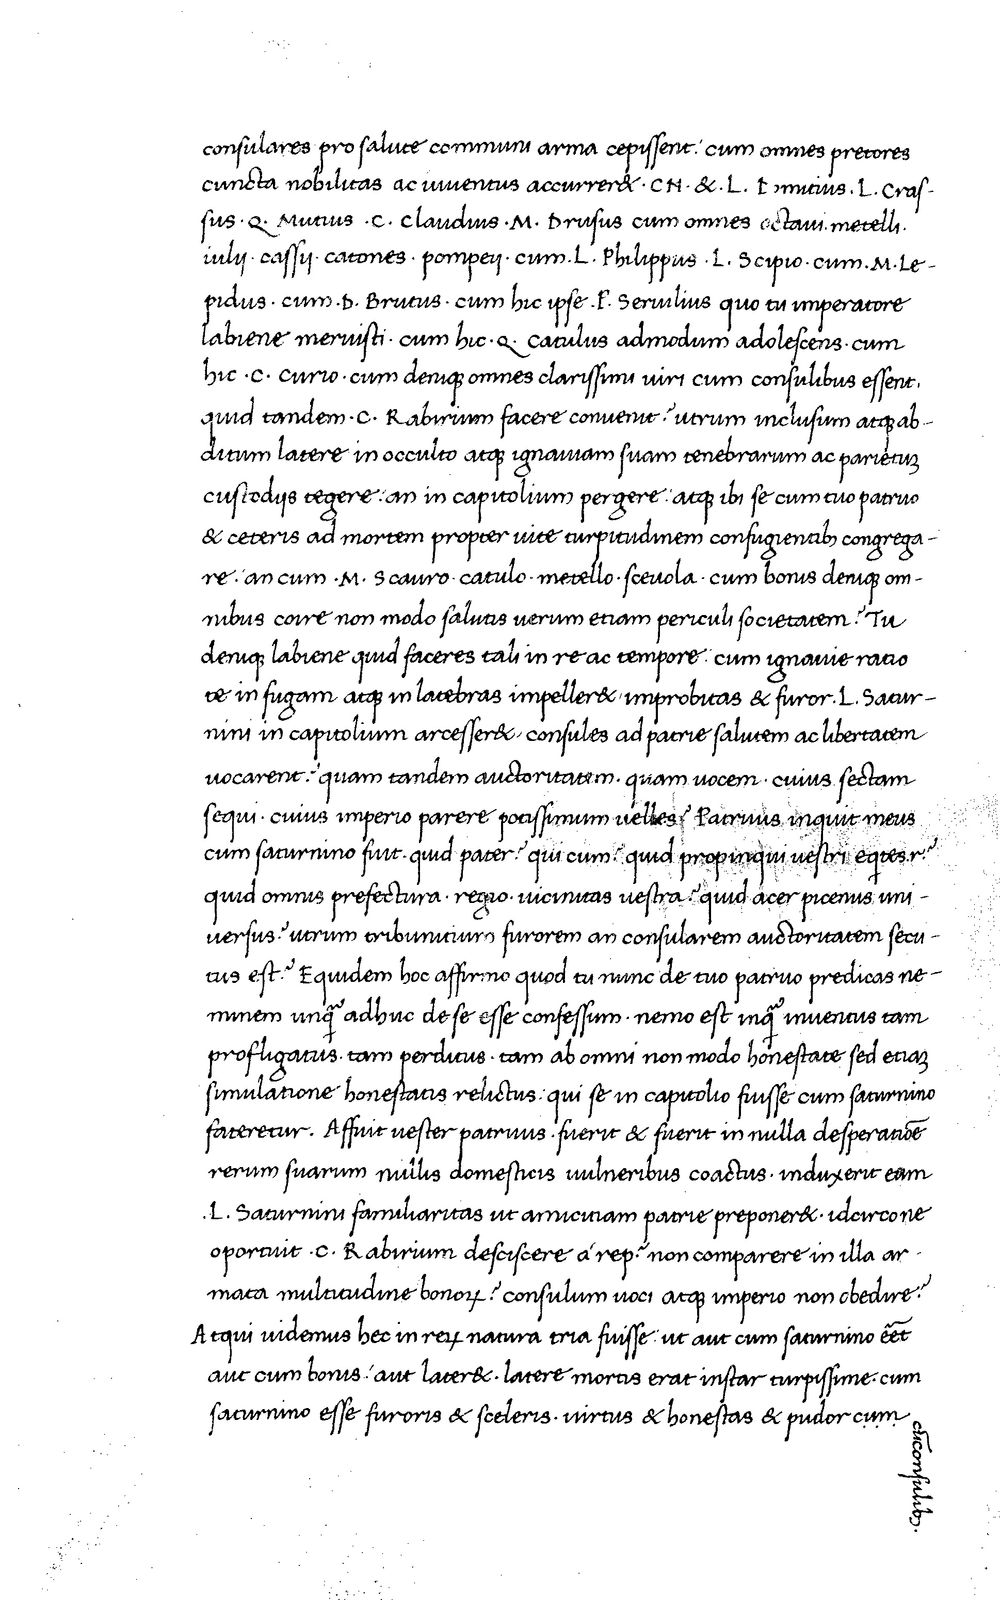 consulares pro salute communi arma cepissent: cum omnes pretores
cuncta nobilitas ac iuventus accurrer&. CN. &. L. Domitius. L. Cras-
sus. Q. Mutius. C. Claudius. M. Drusus cum omnes octavi. metelli.
iulij. cassij. catones. pompeij. cum. L. Philippus. L. Scipio. cum. M. Le-
pidus. cum. D. Brutus. cum hic ipse. P. Servilius quo tu imperatore
labiene meruisti. cum hic. Q. Catulus admodum adolescens. cum
hic. C. Curio. cum deniqꝫ omnes clarissimi viri cum consulibus essent.
quid tandem. C. Rabirium facere convenit? utrum inclusum atqꝫ ab-
ditum latere in occulto atqꝫ ignaviam suam tenebrarum ac parietuꝫ
custodijs tegere: an in capitolium pergere: atqꝫ ibi se cum tuo patruo
& ceteris ad mortem propter vite turpitudinem confugientibꝫ congrega-
re: an cum. M. Scauro. catulo. metello. scevola. cum bonis deniqꝫ om-
nibus coire non modo salutis verum etiam periculi societatem? Tu
deniqꝫ labiene quid faceres tali in re ac tempore: cum ignavie ratio
te in fugam atqꝫ in latebras impeller&, improbitas & furor. L. Satur-
nini in capitolium arcesser&, consules ad patrie salutem ac libertatem
vocarent? quam tandem auctoritatem. quam vocem. cuius sectam
sequi. cuius imperio parere potissimum velles? Patruus inquit meus
cum saturnino fuit. quid pater? qui cum? quid propinqui vestri eqites.r.?
quid omnis prefectura. regio. vicinitas vestra? quid acer picenus uni-
versus? utrum tribunitium furorem an consularem auctoritatem secu-
tus est? Equidem hoc affirmo quod tu nunc de tuo patruo predicas ne-
minem unqᷓ adhuc de se esse confessum. nemo est inqᷓ inventus tam
profligatus. tam perditus. tam ab omni non modo honestate sed etiaꝫ
simulatione honestatis relictus: qui se in capitolio fuisse cum saturnino
fateretur. Affuit vester patruus. fuerit & fuerit in nulla desperatiōe
rerum suarum nullis domesticis vulneribus coactus. induxerit eum
.L. Saturnini familiaritas ut amicitiam patrie preponer&. idcirco ne
oportuit. C. Rabirium desciscere a rep.? non comparere in illa ar-
mata multitudine bonoꝝ? consulum voci atqꝫ imperio non obedire?
Atqui videmus hec in reꝝ natura tria fuisse: ut aut cum saturnino eēt
aut cum bonis: aut later&. latere mortis erat instar turpissime. cum
saturnino esse furoris & sceleris. virtus & honestas & pudor cum
cū consulibꝫ.